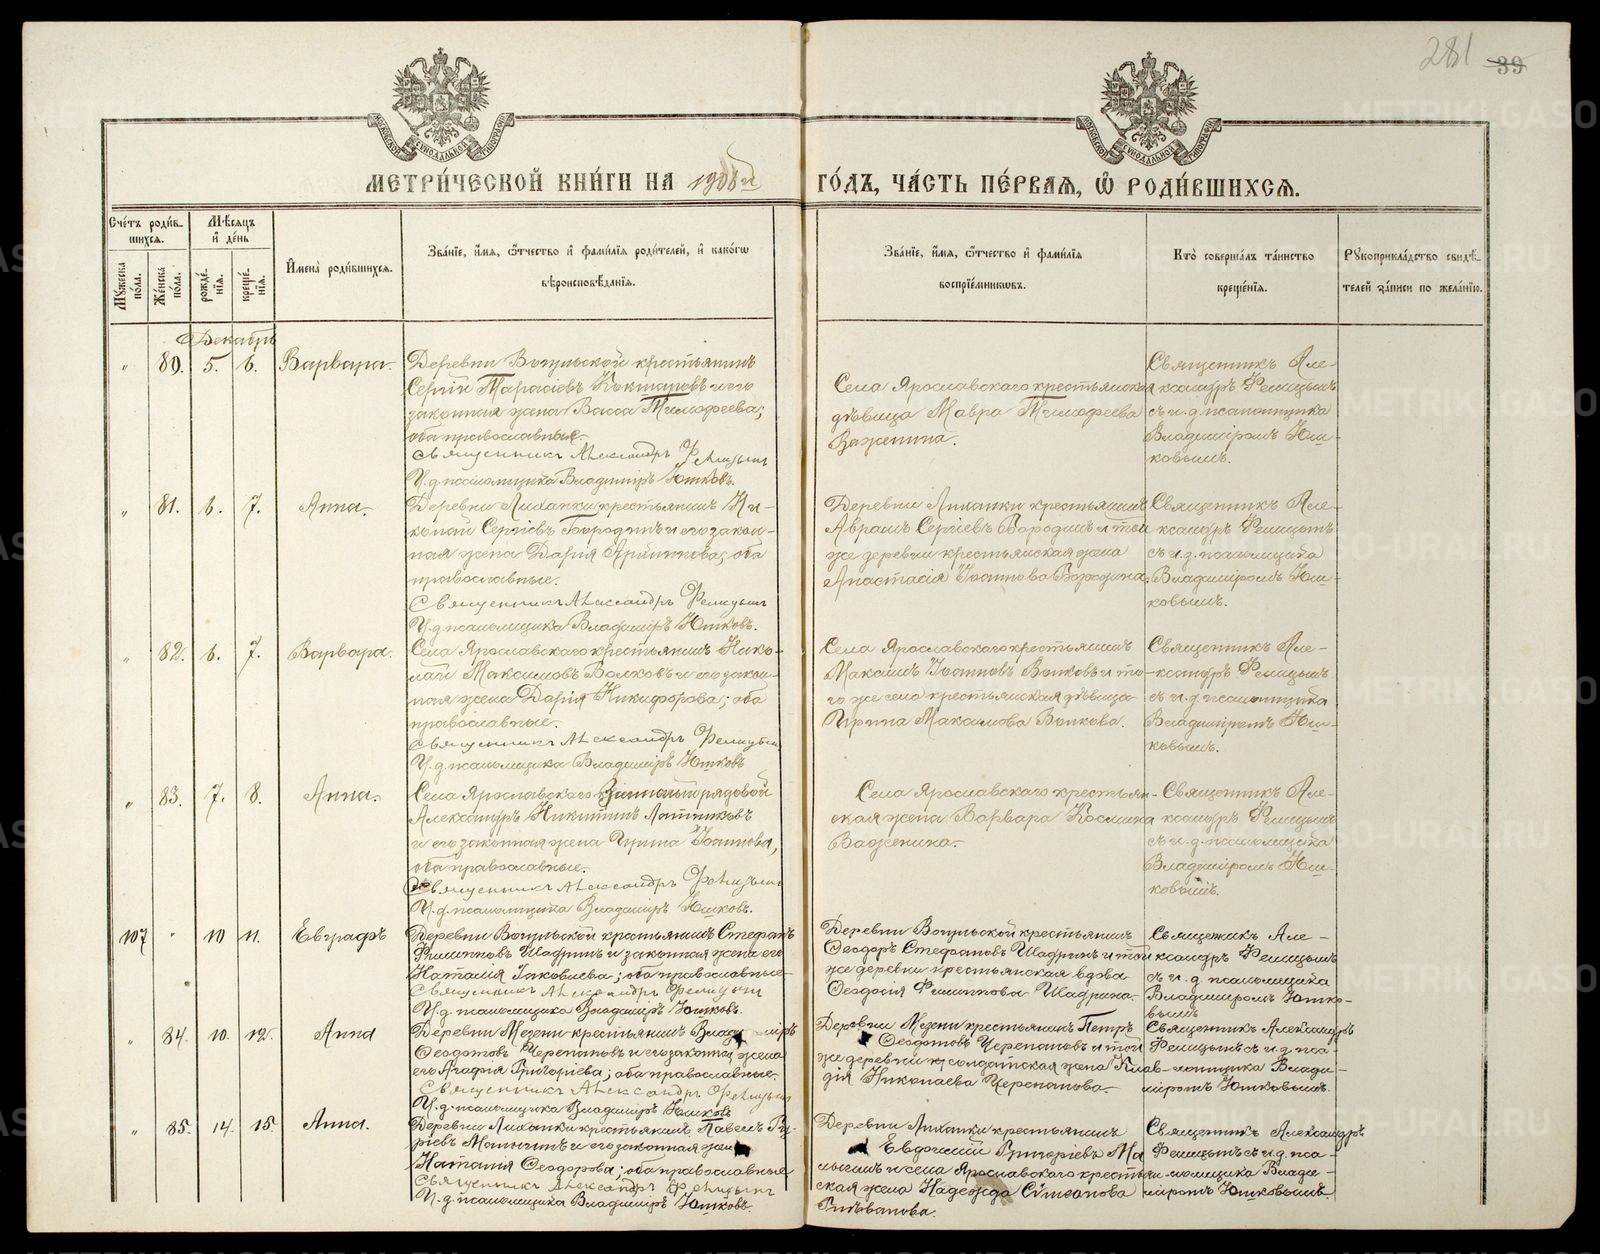 281 39
МЕТРИ́ЧЕСКОЙ КНИ́ГИ НА 1908й ГО́ДЪ, ЧА́СТЬ ПЕ́РВАѦ, Ѽ РОДИ́ВШИХСѦ.
Сче́тъ роди́в-
шихсѧ.
Мѣ́сѧцъ
и҆ де́нь
Мꙋ́жеска
по́ла.
Же́нска
по́ла.
рожде́-
нїѧ.
креще́-
нїѧ.
И҆мена̀ роди́вшихсѧ.
Зва́нїе, и҆́мѧ, ѻ҆́тчество и҆ фами́лїѧ роди́телей, и҆ како́гѡ
вѣроисповѣ́данїѧ.
Зва́нїе, и҆́мѧ, ѻ҆́тчество и҆ фами́лїѧ
воспрїе́мникѡвъ.
Кто̀ соверша́лъ та́инство
креще́нїѧ.
Рꙋкоприкла́дство свидѣ́-
телей за́писи по жела́нїю.
Декабрь
" 80. 5. 6. Варвара.
Деревни Вогульской крестьянинъ
Сергiй Тарасiевъ и его
законная жена Васса Тимофеева;
оба православные.
Священникъ Александръ
И.д. псаломщика Владимiръ Юшковъ.
Села Ярославскаго крестьянская
дѣвица Мавра Тимофеева
Важенина.
Священникъ Але-
ксандръ
съ и.д. псаломщика
Владимiромъ Юш-
ковымъ.
" 81. 6. 7. Анна.
Деревни Липанки крестьянинъ Ни-
колай Сергiевъ Бородинъ и его закон-
ная жена Дарiя оба
православные.
Священникъ Александръ
И.д. псаломщика Владимiръ Юшковъ.
Деревни Липанки крестьянинъ
Авраамъ Сергiевъ Бородинъ и той
же деревни крестьянская жена
Анастасiя Iоаннова Бородина.
Священникъ Але-
ксандръ
съ и.д. псаломщика
Владимiромъ Юш-
ковымъ.
" 82. 6. 7. Варвара.
Села Ярославскаго крестьянинъ Нико-
лай Максимовъ Волковъ и его закон-
ная жена Дарiя Никифорова; оба
православные.
Священникъ Александръ
И.д. псаломщика Владимiръ Юшковъ
Села Ярославскаго крестьянинъ
Максимъ Iоанновъ Волковъ и то-
го же села крестьянская дѣвица
Ирина Максимова Волкова.
Священникъ Але-
ксандръ
съ и.д. псаломщика
Владимiромъ Юш-
ковымъ.
" 83. 7. 8. Анна.
Села Ярославскаго запасный рядовой
Александръ Никитинъ Латниковъ
и его законная жена Ирина Iоаннова,
оба православные.
Священникъ Александръ
И.д. псаломщика Владимiръ Юшковъ.
Села Ярославскаго крестьян-
ская жена Варвара Космина
Важенина.
Священникъ Але-
ксандръ
съ и.д. псаломщика
Владимiромъ Юш-
ковымъ.
107 " 10 11. Евграфъ
Деревни Вогульской крестьянинъ Стефанъ
Филипповъ Шадринъ и законная жена его
Наталiя Iаковлева; оба православные
Священникъ Александръ
И.д. псаломщика Владимiръ Юшковъ.
Деревни Вогульской крестьянинъ
Ѳеодоръ Стефановъ Шадринъ и той
же деревни крестьянская вдова
Ѳеодосiя Филиппова Шадрина.
Священникъ Але-
ксандръ
съ и.д. псаломщика
Владимiромъ Юшко-
вымъ
" 84. 10. 12. Анна
Деревни Мезени крестьянинъ Владимiръ
Ѳеодотовъ Черепановъ и законная жена
его Агафiя Григорiева; оба православные.
Священникъ Александръ
И.д. псаломщика Владимiръ Юшковъ
Деревни Мезени крестьянинъ Петръ
Ѳеодотовъ Черепановъ и той
же деревни солдатская жена Клав-
дiя Николаева Черепанова.
Священникъ Александръ
съ и.д. пса-
ломщика Влади-
мiромъ Юшковымъ.
" 85. 14. 15. Анна.
Деревни Липанки крестьянинъ Павелъ
и его законная жена
Наталiя Ѳеодорова; оба православные
Священникъ Александръ
И.д. псаломщика Владимiръ Юшковъ.
Деревни Липанки крестьянинъ
Евдокимъ Григорiевъ Ма
и села Ярославскаго крестьян-
ская жена Надежда Симеонова
Священникъ Александръ
съ и.д. пса-
ломщика Влади-
мiромъ Юшковымъ.
METRIKI.GASO-URAL.RU